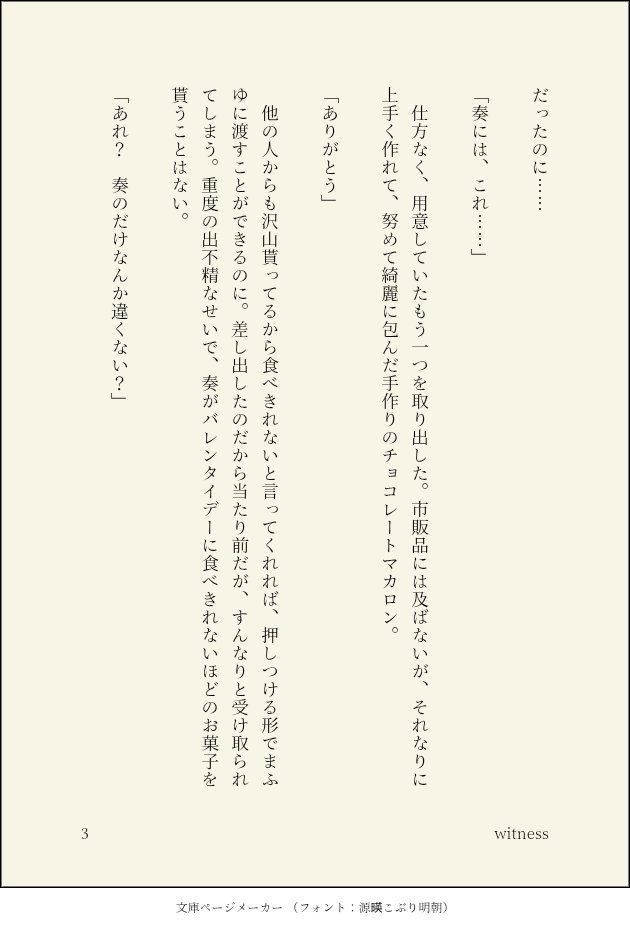 だったのに……
「奏には、これ……」
　仕方なく、用意していたもう一つを取り出した。市販品には及ばないが、それなりに
上手く作れて、努めて綺麗に包んだ手作りのチョコレートマカロン。
「ありがとう」
　他の人からも沢山貰ってるから食べきれないと言ってくれれば、押しつける形でまふ
ゆに渡すことができるのに。差し出したのだから当たり前だが、すんなりと受け取られ
てしまう。重度の出不精なせいで、奏がバレンタイデーに食べきれないほどのお菓子を
貰うことはない。
「あれ？　奏のだけなんか違くない？」
witness
3
文庫ページメーカー （フォント：源暎こぶり明朝）